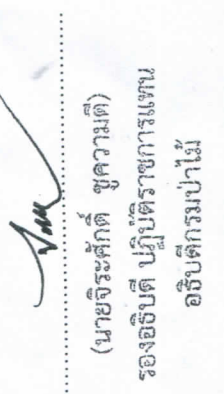 (นายจิระศักดิ์ ชูความดี)
รองอธิบดี ปฏิบัติราชการแทน
อธิบดีกรมป่าไม้